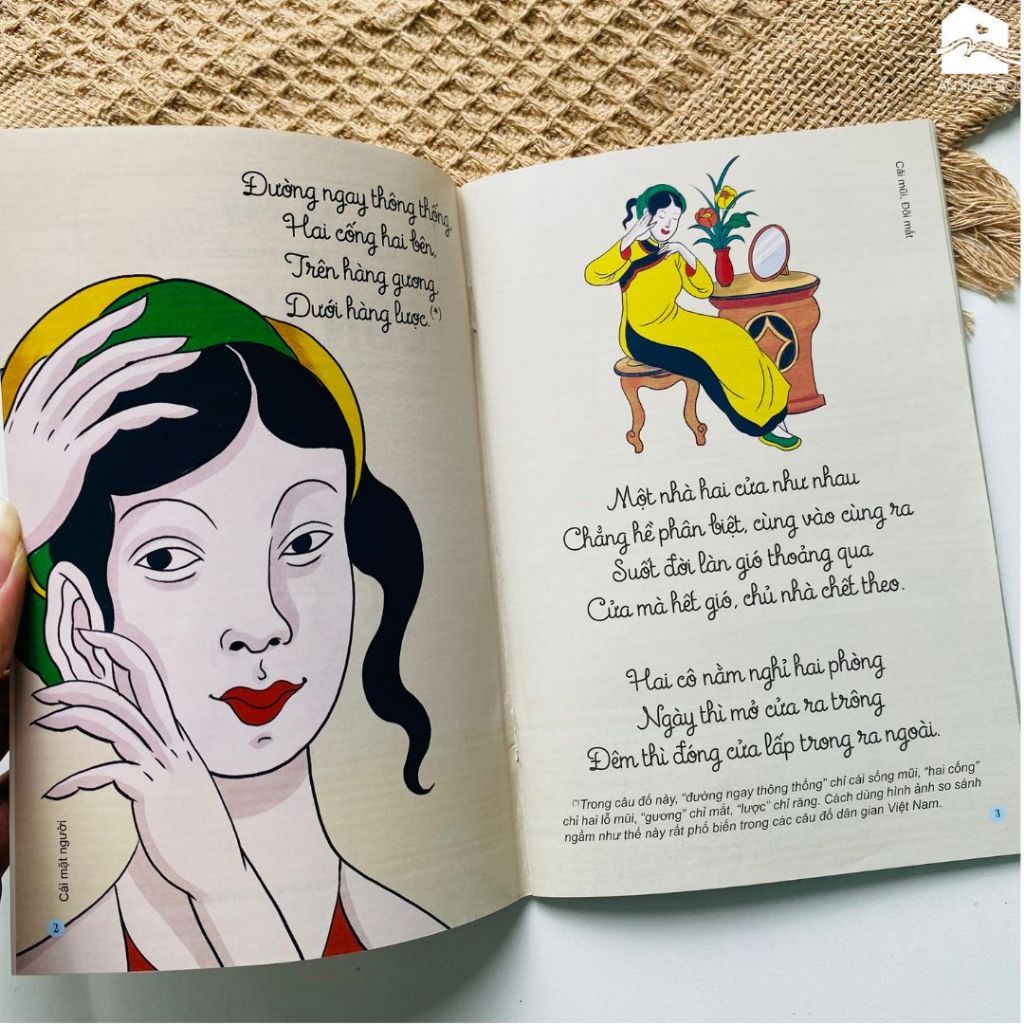 Đường ngay thông thống
Hai cống hai bên,
Trên hàng gương,
Dưới hàng lược.(*)
Cái mặt người
2
Cái mũi, Đôi mắt
Một nhà hai cửa như nhau
Chẳng hề phân biệt, cùng vào cùng ra
Suốt đời làn gió thoảng qua
Cửa mà hết gió, chủ nhà chết theo.
Hai cô nằm nghỉ hai phòng
Ngày thì mở cửa ra trông
Đêm thì đóng cửa lấp trong ra ngoài.
(*)Trong câu đố này, “đường ngay thông thống” chỉ cái sống mũi, “hai cống”
chỉ hai lỗ mũi, “gương” chỉ mắt, “lược” chỉ răng. Cách dùng hình ảnh so sánh
ngầm như thế này rất phổ biến trong các câu đố dân gian Việt Nam.
3